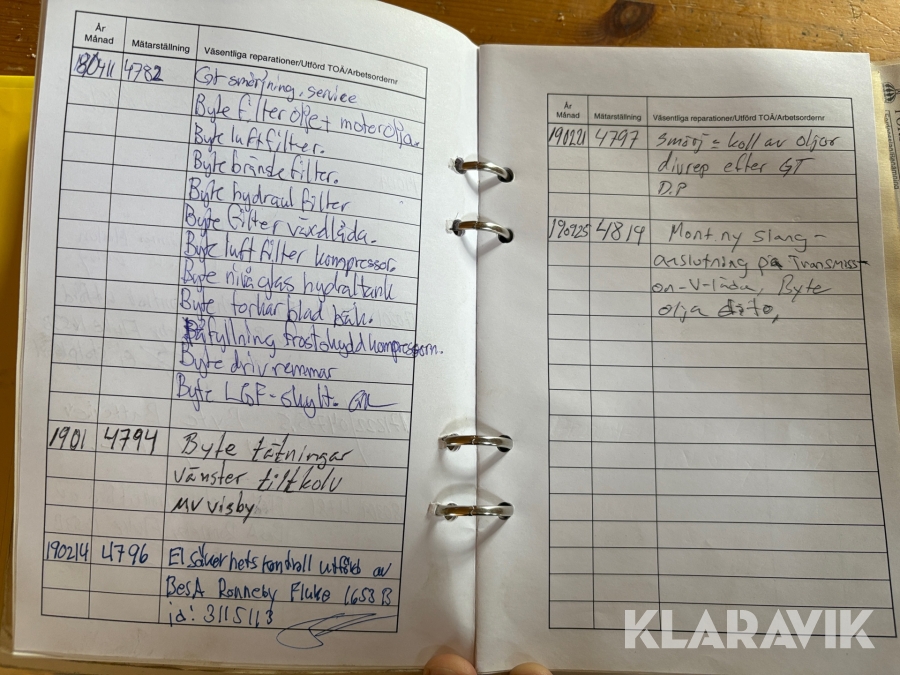 År
Månad Mätarställning Väsentliga reparationer/Utförd TOÅ/Arbetsordernr
180411 4782 GT smörjning, service
Byte filter olje + motorolja.
Byte luftfilter.
Byte bränslefilter.
Byte hydraulfilter
Byte filter växellåda.
Byte luftfilter kompressor.
Byte nivåglas hydraltank
Byte torkarblad bak.
Påfyllning frostskydd kompressorn.
Byte drivremmar
Byte LGF-skylt.
1901 4794 Byte tätningar
vänster tiltkolv
MV visby
190214 4796 El säkerhetskontroll utförd av
BesA Ronneby Fluke 1653 B
id: 3115113
År
Månad Mätarställning Väsentliga reparationer/Utförd TOÅ/Arbetsordernr
190221 4797 Smörj = koll av oljor
divrep efter GT
D.P
190925 4819 Mont. ny slang-
anslutning på Transmissi-
on-V-låda, Byte
olja dito,
KLARAVIK